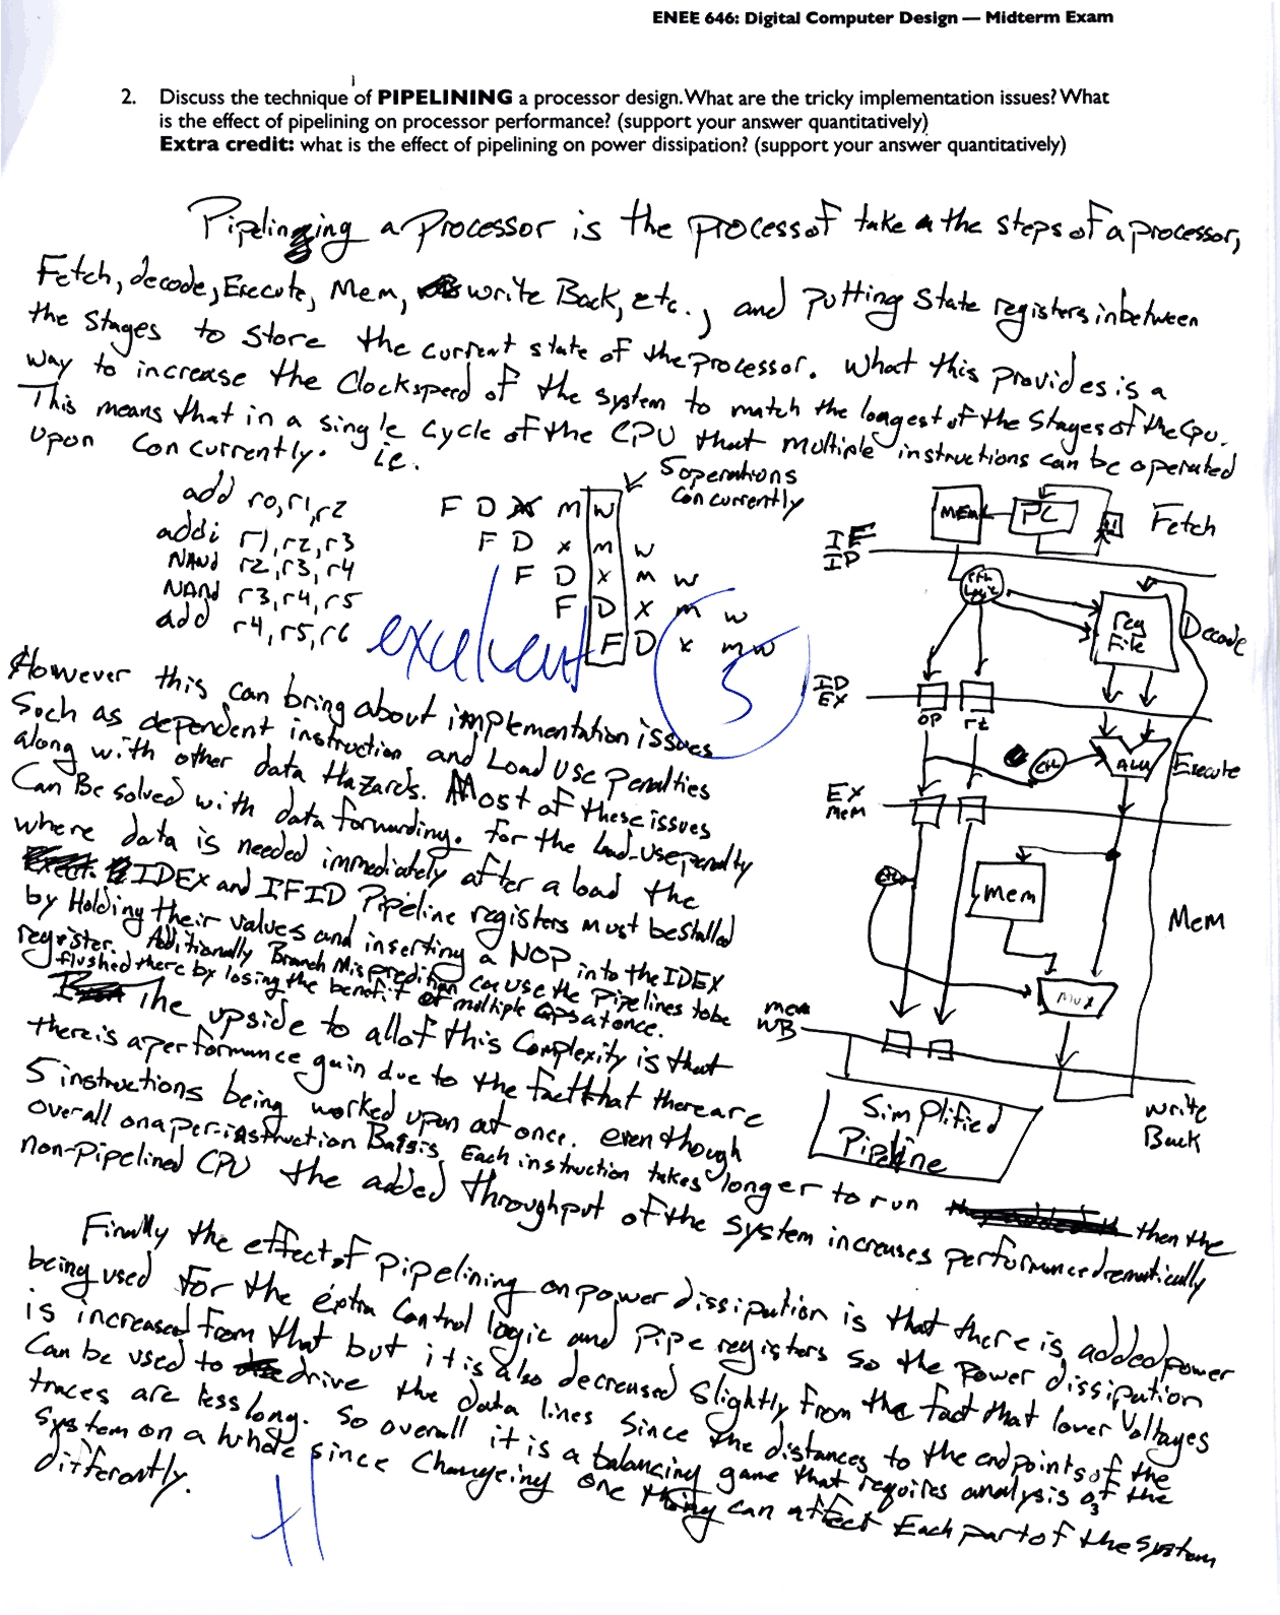 ENEE 646: Digital Computer Design — Midterm Exam
2. Discuss the technique of PIPELINING a processor design. What are the tricky implementation issues? What
is the effect of pipelining on processor performance? (support your answer quantitatively)
Extra credit: what is the effect of pipelining on power dissipation? (support your answer quantitatively)
Pipelinging a Processor is the process of take the steps of a processor,
Fetch, decode, Execute, Mem, write Back, etc., and putting state registers inbetween
the stages to store the current state of the processor. What this provides is a
way to increase the Clockspeed of the system to match the longest of the stages of the cpu.
This means that in a single cycle of the CPU that multiple instructions can be operated
upon Concurrently. ie.
5 operations
Concurrently
add r0,r1,r2 F D X M W
addi r1,r2,r3 F D x m w
NAND r2,r3,r4 F D x m w
NAND r3,r4,r5 F D X m w
add r4,r5,r6 F D x m w
excellent
5
However this can bring about implementation issues
Such as dependent instruction, and Load Use Penalties
along with other data Hazards. Most of these issues
Can Be solved with data forwarding. for the load-use penalty
where data is needed immediately after a load the
IDEX and IFID Pipeline registers must be stalled
by Holding their values and inserting a NOP into the IDEX
register. Additionally Branch Misprediction can use the Pipelines to be
flushed there by losing the benefit of multiple ops at once.
The upside to all of this Complexity is that
there is a performance gain due to the fact that there are
5 instructions being worked upon at once. even though
overall on a per-instruction Basis, Each instruction takes longer to run then the
non-Pipelined CPU the added throughput of the system increases performance dramatically
MEM
PC
+1
Fetch
IF
ID
Ctl
Logic
reg
File
Decode
ID
EX
OP
rt
Ctl
ALU
Execute
EX
Mem
Ctl
mem
Mem
mux
mem
WB
Write
Back
Simplified
Pipeline
Finally the effect of pipelining on power dissipation is that there is added power
being used for the extra Control logic and Pipe registers so the Power dissipation
is increased from that but it is also decreased slightly from the fact that lower Voltages
Can be used to drive the data lines since the distances to the endpoints of the
traces are less long. So overall it is a balancing game that requires analysis of the
system on a whole since Changeing one thing can affect Each part of the system
differently.
3
+1